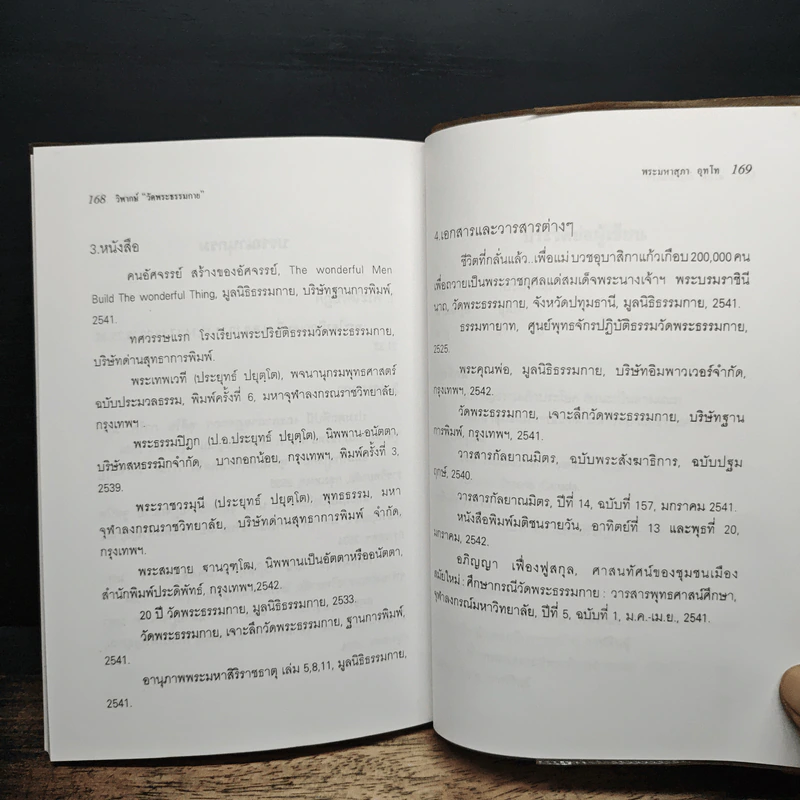 168 วิพากษ์ "วัดพระธรรมกาย"
3.หนังสือ
คนอัศจรรย์ สร้างของอัศจรรย์, The wonderful Men
Build The wonderful Thing, มูลนิธิธรรมกาย, บริษัทฐานการพิมพ์,
2541.
ทศวรรษแรก โรงเรียนพระปริยัติธรรมวัดพระธรรมกาย,
บริษัทด่านสุทธาการพิมพ์.
พระเทพเวที (ประยุทธ์ ปยุตฺโต), พจนานุกรมพุทธศาสตร์
ฉบับประมวลธรรม, พิมพ์ครั้งที่ 6, มหาจุฬาลงกรณราชวิทยาลัย,
กรุงเทพฯ.
พระธรรมปิฎก (ป.อ.ประยุทธ์ ปยุตฺโต), นิพพาน-อนัตตา,
บริษัทสหธรรมิกจำกัด, บางกอกน้อย, กรุงเทพฯ, พิมพ์ครั้งที่ 3,
2539.
พระราชวรมุนี (ประยุทธ์ ปยุตฺโต), พุทธธรรม, มหา
จุฬาลงกรณราชวิทยาลัย, บริษัทด่านสุทธาการพิมพ์ จำกัด,
กรุงเทพฯ.
พระสมชาย ฐานวุฑฺโฒ, นิพพานเป็นอัตตาหรืออนัตตา,
สำนักพิมพ์ประดิพัทธ์, กรุงเทพฯ,2542.
20 ปี วัดพระธรรมกาย, มูลนิธิธรรมกาย, 2533.
วัดพระธรรมกาย, เจาะลึกวัดพระธรรมกาย, ฐานการพิมพ์,
2541.
อานุภาพพระมหาสิริราชธาตุ เล่ม 5,8,11, มูลนิธิธรรมกาย,
2541.
พระมหาสุภา อุทโท 169
4.เอกสารและวารสารต่างๆ
ชีวิตที่กลั่นแล้ว..เพื่อแม่ บวชอุบาสิกาแก้วเกือบ 200,000 คน
เพื่อถวายเป็นพระราชกุศลแด่สมเด็จพระนางเจ้าฯ พระบรมราชินี
นาถ, วัดพระธรรมกาย, จังหวัดปทุมธานี, มูลนิธิธรรมกาย, 2541.
ธรรมทายาท, ศูนย์พุทธจักรปฏิบัติธรรมวัดพระธรรมกาย,
2525.
พระคุณพ่อ, มูลนิธิธรรมกาย, บริษัทอิมพาวเวอร์จำกัด,
กรุงเทพฯ, 2542.
วัดพระธรรมกาย, เจาะลึกวัดพระธรรมกาย, บริษัทฐาน
การพิมพ์, กรุงเทพฯ, 2541.
วารสารกัลยาณมิตร, ฉบับพระสังฆาธิการ, ฉบับปฐม
ฤกษ์, 2540.
วารสารกัลยาณมิตร, ปีที่ 14, ฉบับที่ 157, มกราคม 2541.
หนังสือพิมพ์มติชนรายวัน, อาทิตย์ที่ 13 และพุธที่ 20,
มกราคม, 2542.
อภิญญา เฟื่องฟูสกุล, ศาสนทัศน์ของชุมชนเมือง
สมัยใหม่ : ศึกษากรณีวัดพระธรรมกาย : วารสารพุทธศาสน์ศึกษา,
จุฬาลงกรณ์มหาวิทยาลัย, ปีที่ 5, ฉบับที่ 1, ม.ค.-เม.ย., 2541.